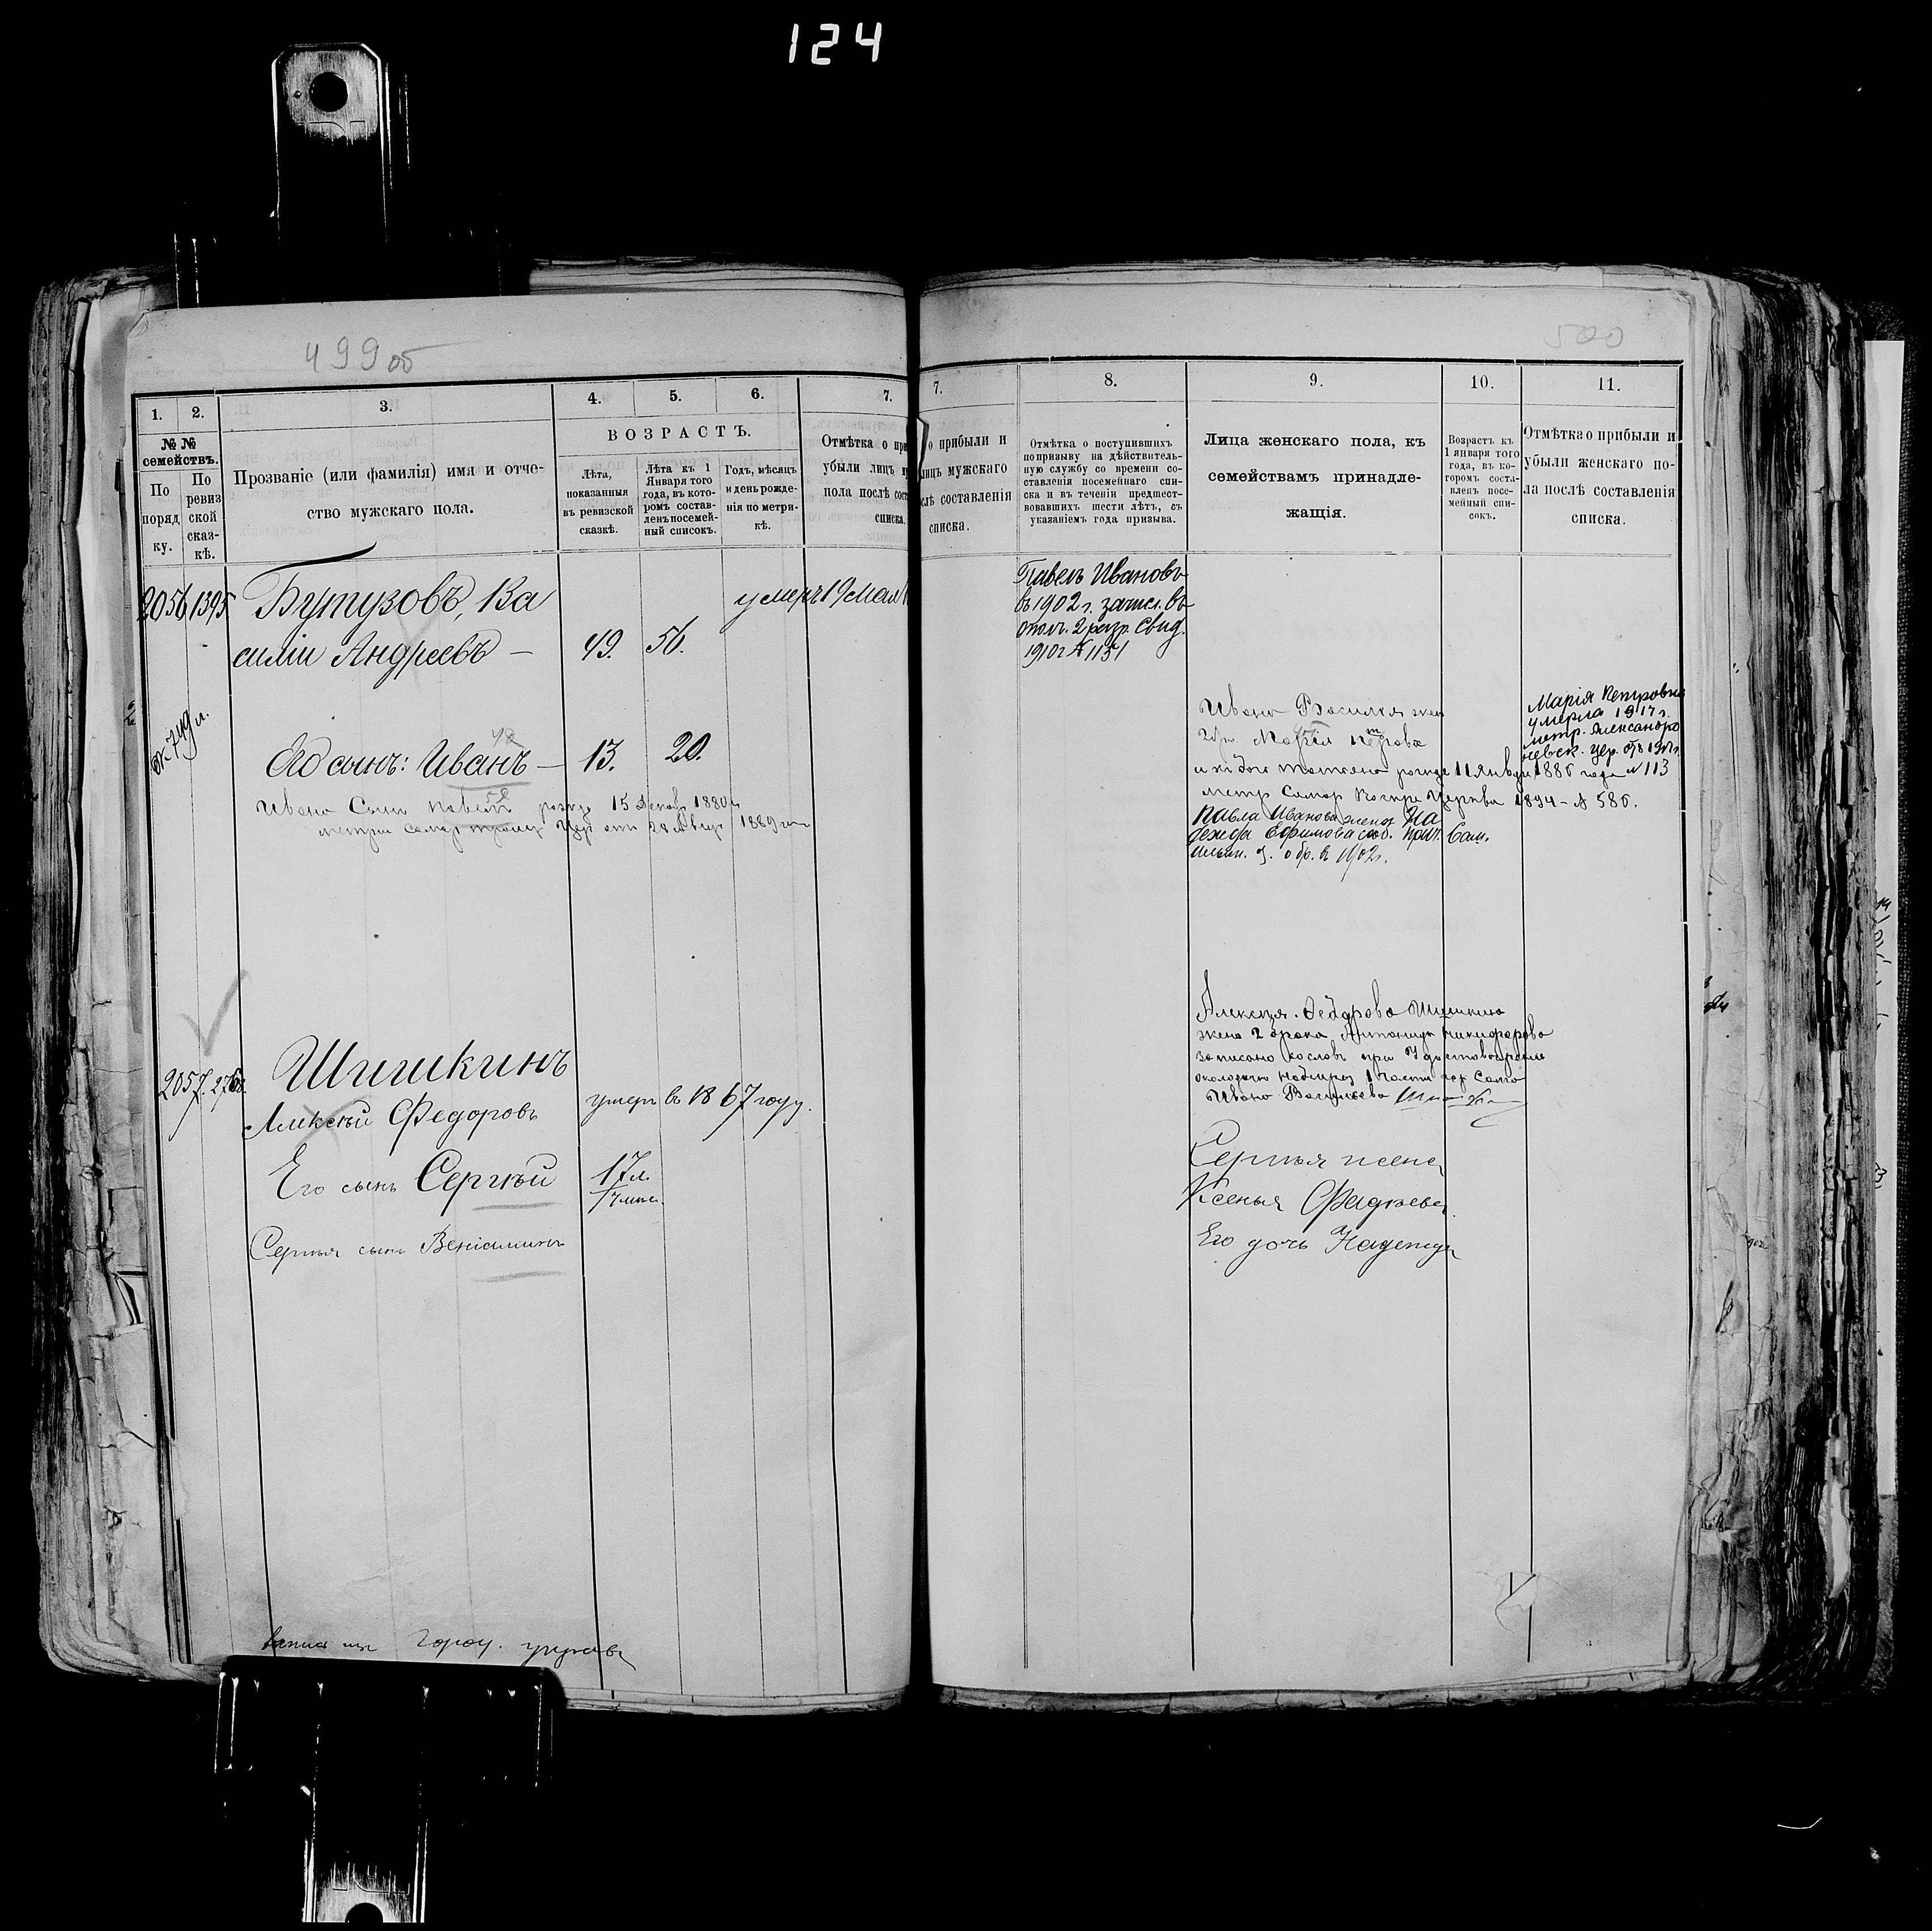 124
499 об
500
1.
2.
3.
4.
5.
6.
7.
№ №
семействъ.
По
поряд
ку.
По
ревиз
ской
сказ-
кѣ.
Прозваніе (или фамилія) имя и отче-
ство мужскаго пола.
ВОЗРАСТЪ.
Лѣта,
показанныя
въ ревизской
сказкѣ.
Лѣта къ 1
Января того
года, въ кото-
ромъ состав-
ленъ посемей-
ный списокъ.
Годъ, мѣсяцъ
и день рожде-
нія по метри-
кѣ.
Отмѣтка о при
убыли лицъ му
пола послѣ сост
списка.
2056 1395 Бутузовъ, Ва
силіи Андреевъ — 49. 56.
умеръ 19 мая
749
Его сынъ: Иванъ — 13. 20.
Ивана Сынъ Павелъ 15 1880
1889
2057. 2768. Шишкинъ
Алексѣй Федоровъ умеръ въ 1867 году.
Его сынъ Сергѣй 17 л.
Сергѣя сынъ Веніаминъ
Город. управы
7.
8.
9.
10.
11.
о прибыли и
лицъ мужскаго
слѣ составленія
списка.
Отмѣтка о поступившихъ
по призыву на дѣйствитель-
ную службу со времени со-
ставленія посемейнаго спи-
ска и въ теченіи предшест-
вовавшихъ шести лѣтъ, съ
указаніемъ года призыва.
Лица женскаго пола, къ
семействамъ принадле-
жащія.
Возрастъ къ
1 января того
года, въ ко-
горомъ соста-
вленъ посе-
мейный спи-
сокъ.
Отмѣтка о прибыли и
убыли женскаго по-
ла послѣ составленія
списка.
Павелъ Ивановъ
въ 1902 г. зачисл. въ
ополч. 2 разр. Свид.
1910 г № 1151
Ивана Василия жен
2 бр. Марія Петрова
11 янвр 1886 года
метр Самар Церкви 1894 - № 586.
Павла Иванова жена На
дежда Ефимова сооб. прич. Сам.
Ильин. ц. о бр. в 1902 г.
Марія Петровна
умерла 1917 г.
метр. Александро
невск. цер.
№ 113
Алексея Федорова Шишкина
жена 2 брака Антонида Никифорова
записана со словъ при удостоверении
1 части гор Самар
Ивана Васильева
Сергѣя жена
Ксенья Фадѣева
Его дочь Надежда